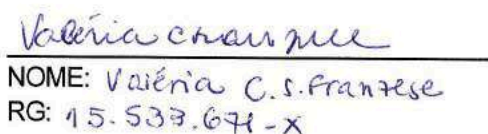 Valéria
NOME: Valéria C.S. Franzese
RG: 15.533.671-X